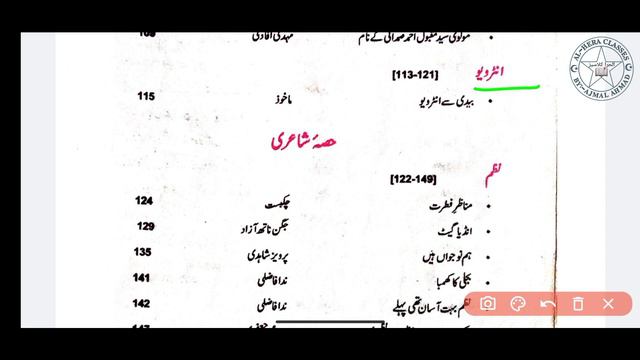 مولوی سید مقبول احمد صمدانی کے نام مہدی افادی 109
انٹرویو [113-121]
• بیدی سے انٹرویو ماخوذ 115
حصۂ شاعری
نظم [122-149]
• مناظرِ فطرت چکبست 124
• انڈیا گیٹ جگن ناتھ آزاد 129
• ہم نوجواں ہیں پرویز شاہدی 135
• بجلی کا کھمبا ندا فاضلی 141
• نظم بہت آسان تھی پہلے ندا فاضلی 142
AL-HERA CLASSES
BY:-AJMAL AHMAD